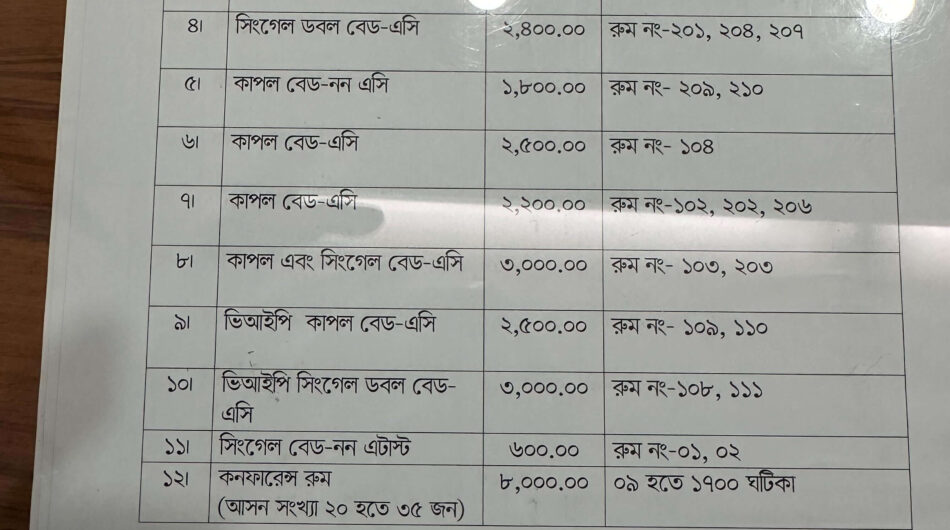 ৪। সিংগেল ডবল বেড-এসি ২,৪০০.০০ রুম নং-২০১, ২০৪, ২০৭
৫। কাপল বেড-নন এসি ১,৮০০.০০ রুম নং- ২০৯, ২১০
৬। কাপল বেড-এসি ২,৫০০.০০ রুম নং- ১০৪
৭। কাপল বেড-এসি ২,২০০.০০ রুম নং-১০২, ২০২, ২০৬
৮। কাপল এবং সিংগেল বেড-এসি ৩,০০০.০০ রুম নং- ১০৩, ২০৩
৯। ভিআইপি কাপল বেড-এসি ২,৫০০.০০ রুম নং- ১০৯, ১১০
১০। ভিআইপি সিংগেল ডবল বেড- ৩,০০০.০০ রুম নং-১০৮, ১১১
এসি
১১। সিংগেল বেড-নন এটাস্ট ৬০০.০০ রুম নং-০১, ০২
১২। কনফারেন্স রুম ৮,০০০.০০ ০৯ হতে ১৭০০ ঘটিকা
(আসন সংখ্যা ২০ হতে ৩৫ জন)